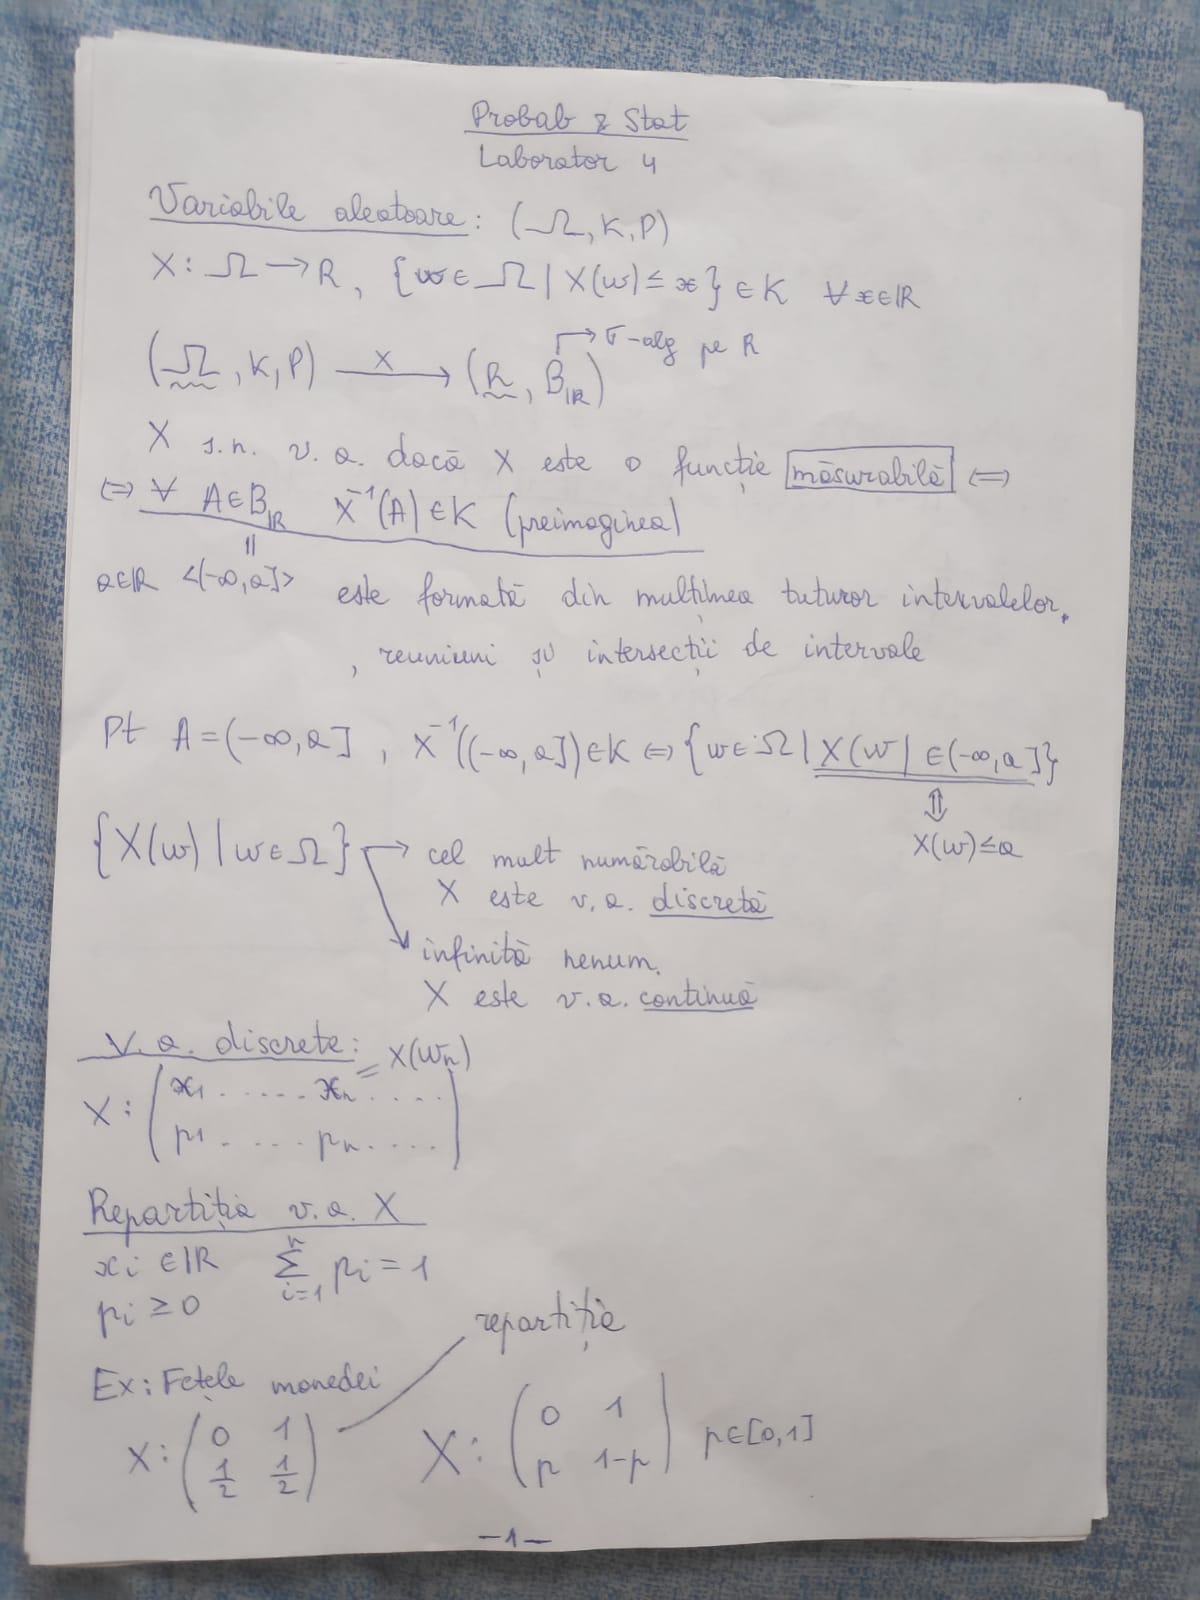 Probab & Stat
Laborator 4
Variabile aleatoare: (Ω, K, P)
X: Ω → R, {w ∈ Ω | X(w) ≤ x} ∈ K ∀ x ∈ ℝ
→ σ-alg pe R
(Ω, K, P) —X→ (R, B_ℝ)
X s.n. v.a. dacă X este o funcție măsurabilă ⇔
⇔ ∀ A ∈ B_ℝ X⁻¹(A) ∈ K (preimaginea)
||
a∈ℝ <(-∞, a]> este formată din mulțimea tuturor intervalelor,
, reuniuni și intersecții de intervale
Pt A = (-∞, a], X⁻¹((-∞, a]) ∈ K ⇔ {w ∈ Ω | X(w) ∈ (-∞, a]}
⇕
X(w) ≤ a
{X(w) | w ∈ Ω} → cel mult numărabilă
X este v.a. discretă
infinită nenum.
X este v.a. continuă
V.a. discrete:
= X(wn)
X: (x1 ..... xn ....
p1 ..... pn ....)
Repartiția v.a. X
xi ∈ ℝ ∑_{i=1}^{n} pi = 1
pi ≥ 0
repartiție
Ex: Fețele monedei
X: (0 1
1/2 1/2)
X: (0 1
p 1-p) p∈[0,1]
-1-